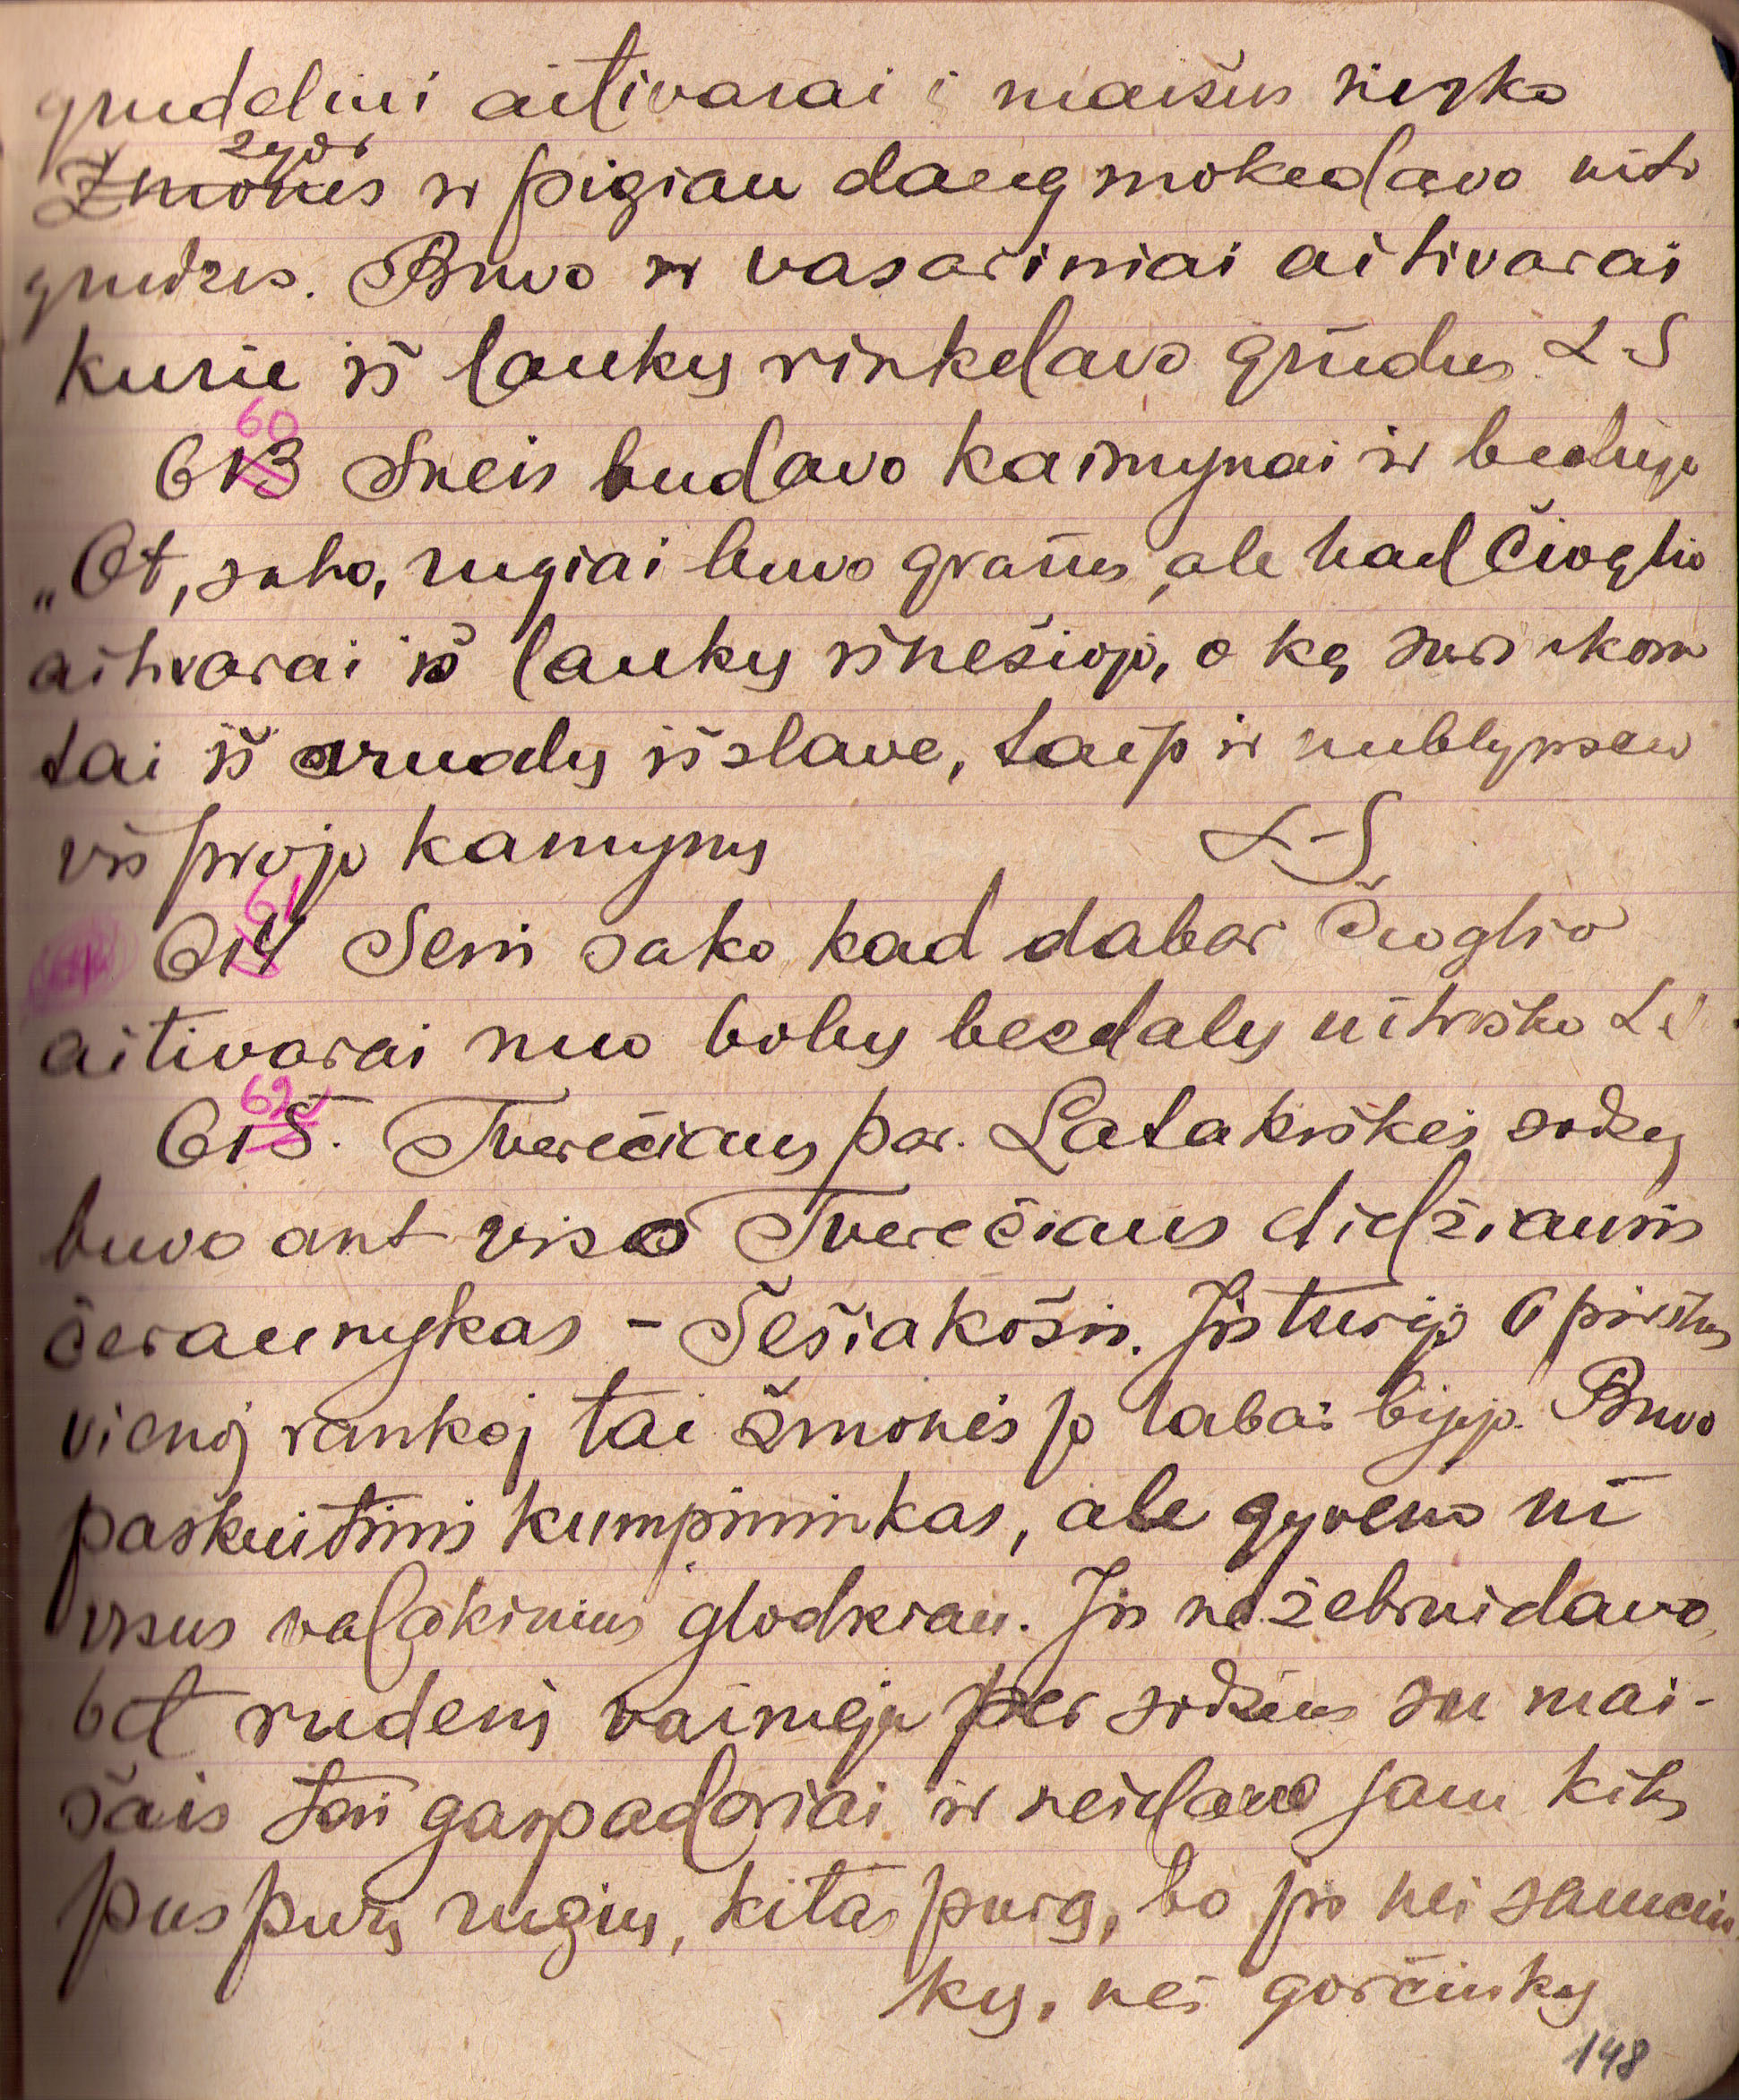 grudeliui aitivarai į maišus
žydai
Žmonės ir pigiau daug mokedavo už
grudus. Buvo ir vasariniai aitivarai
kurie iš laukų rinkdavo grūdus L S
60
613 Sueis budavo kaimynai ir bedūja
„Ot, sako, rugiai buvo gražus, ale kad Čioglio
aitvarai iš laukų išnešiojo, o ką surinkom
tai iš aruodų iššlavė, taip ir
višpirojo kamynų L-S
61
614 Seni sako kad dabar Čioglio
aitivarai nuo bobų bezdalų užtroško L S
62
615. Tverečiaus par. Latakiškės sodžių
buvo ant viso Tverečiaus didžiausis
čeraunykas - Šešiakošis. Jis turėjo 6 pirštus
vienoj rankoj tai žmonės jo labai bijojo. Buvo
paskutinis kumpininkas, ale gyveno už
visus valakinius glodžiau. Jis nežebruidavo,
bet rudenį vaineja per sodžius su mai-
šais tai gaspadoriai ir neidavo jam kitas
puspurį rugių, kitas purą, bo jis nei
kų, nei gorčiukų
148